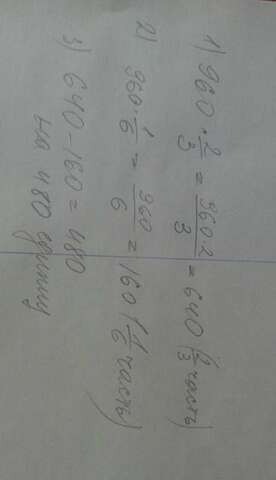 1) 960 · 2/3 = 960·2/3 = 640 (2/3 часть)
2) 960 · 1/6 = 960/6 = 160 (1/6 часть)
3) 640 - 160 = 480
на 480